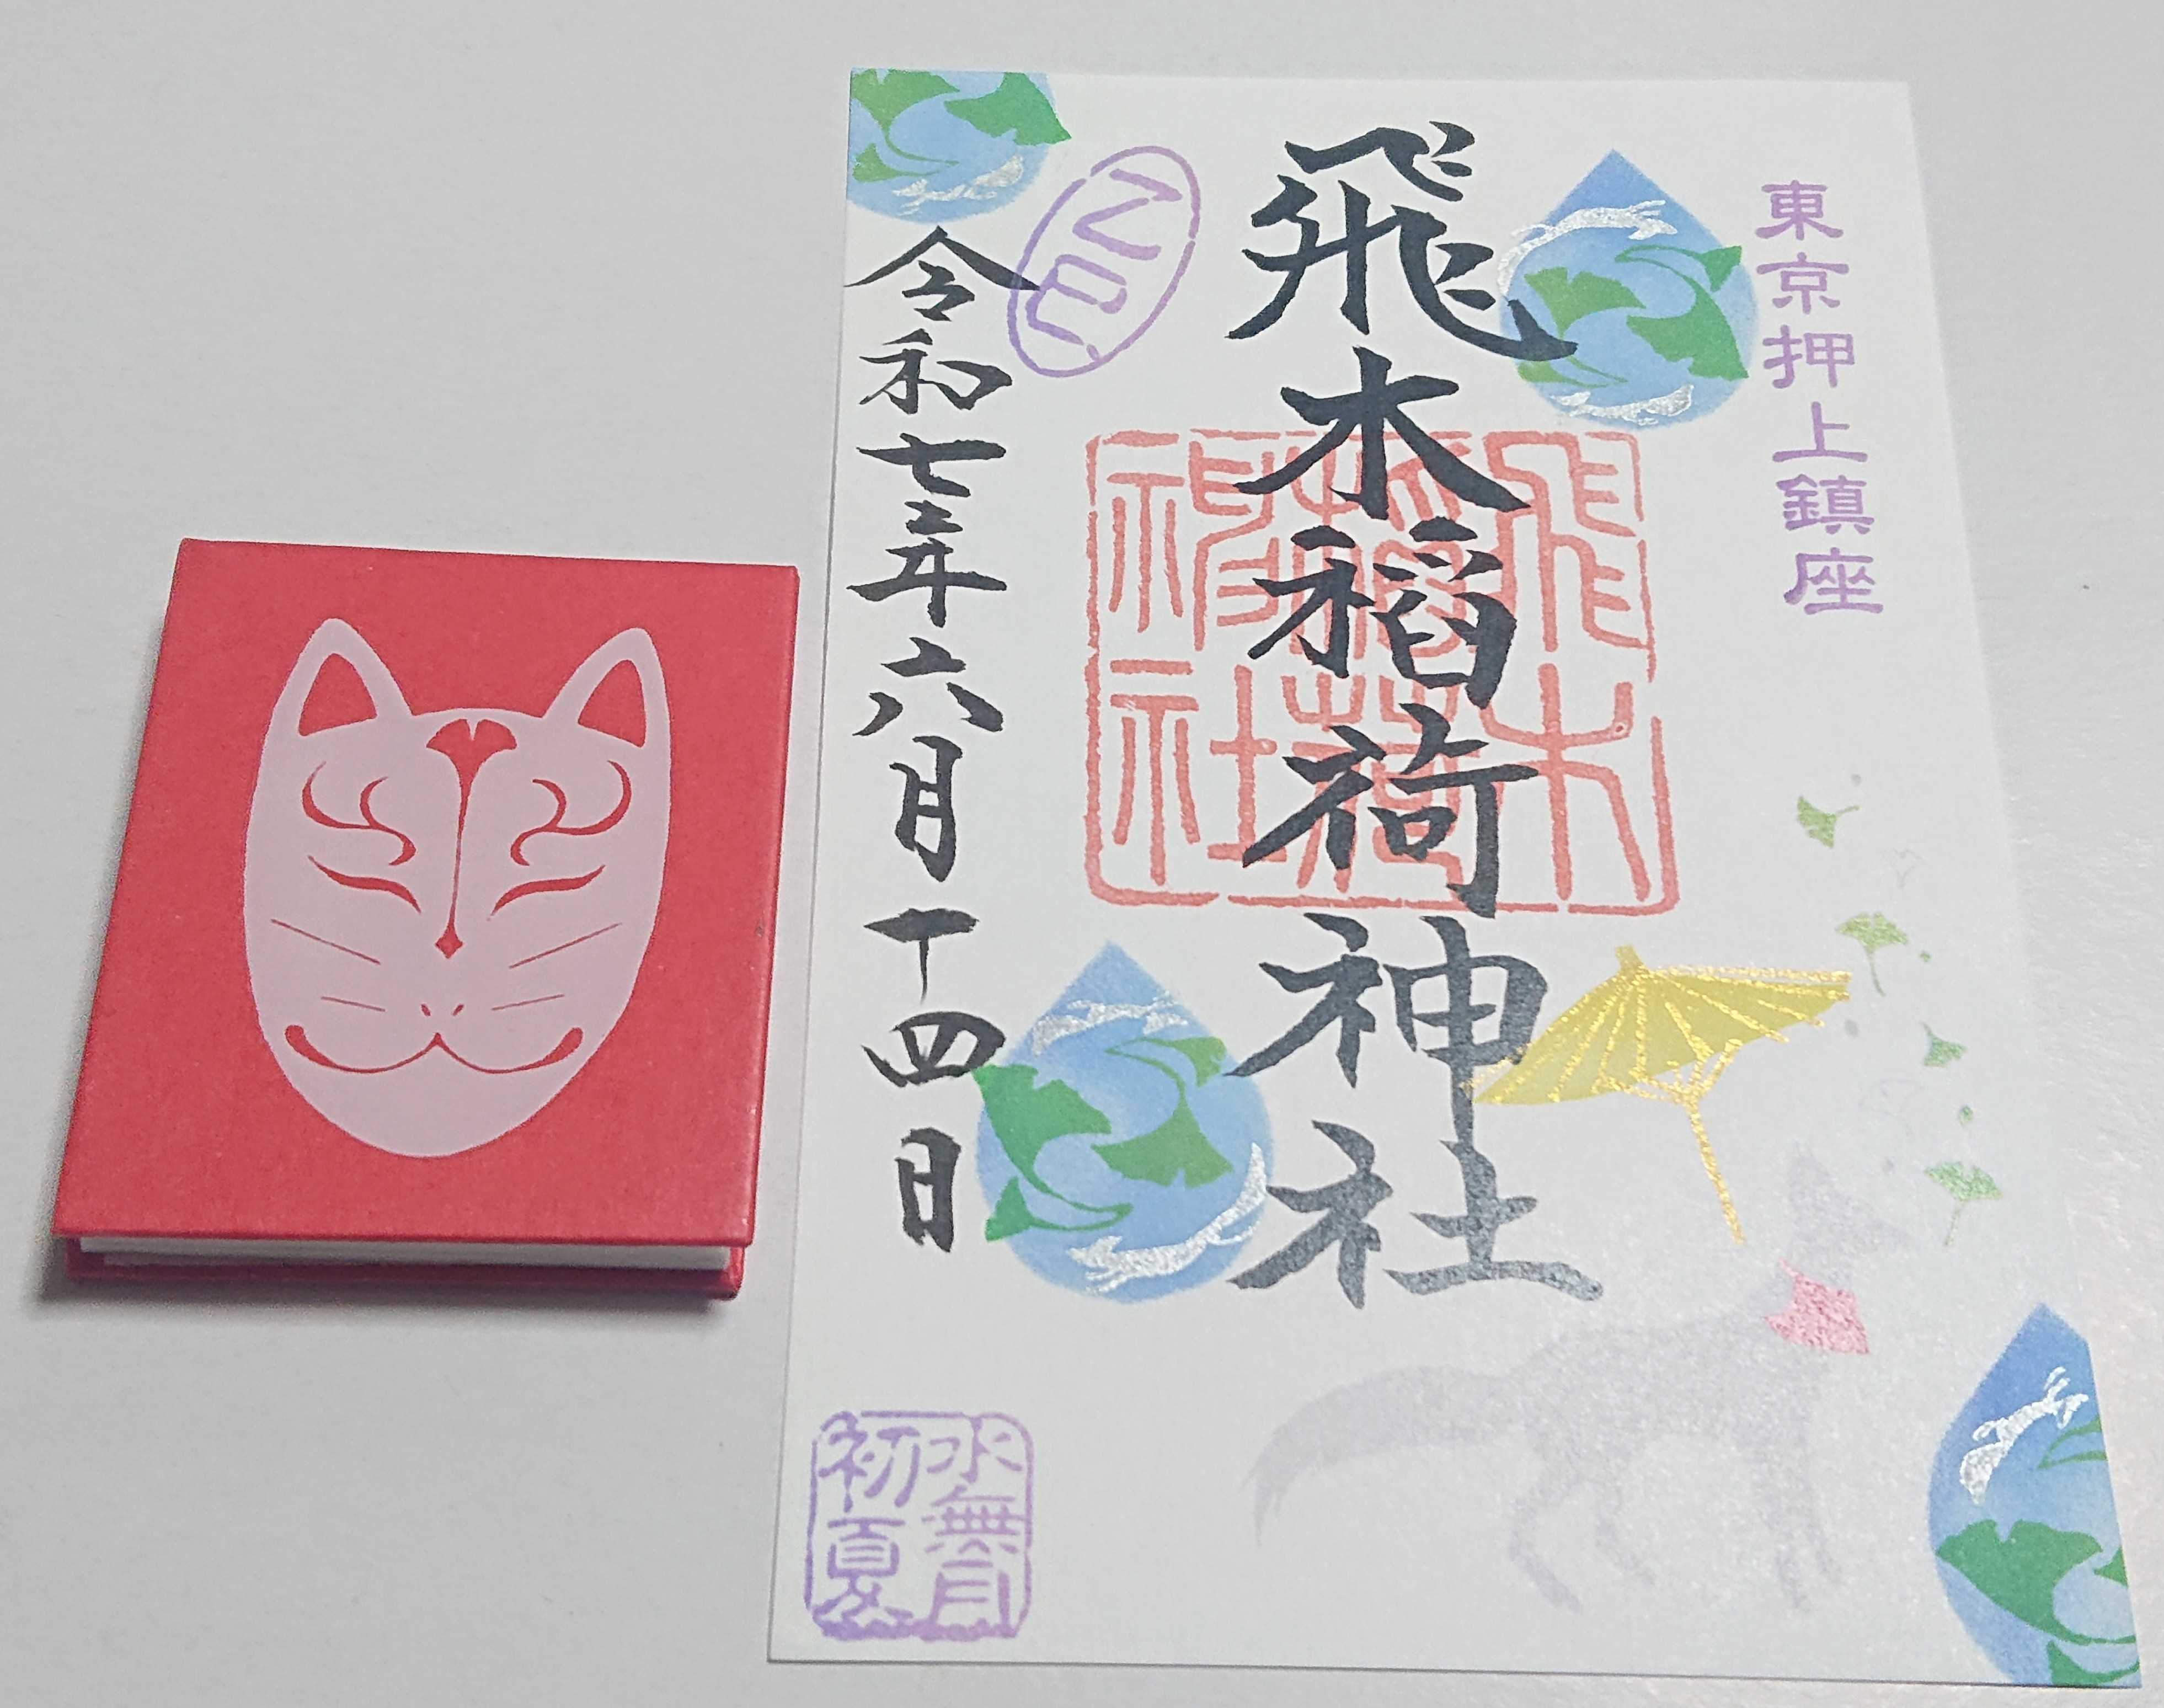 東京押上鎮座
飛木稲荷神社
飛木稲荷神社
令和七年六月十四日
水無月
初夏